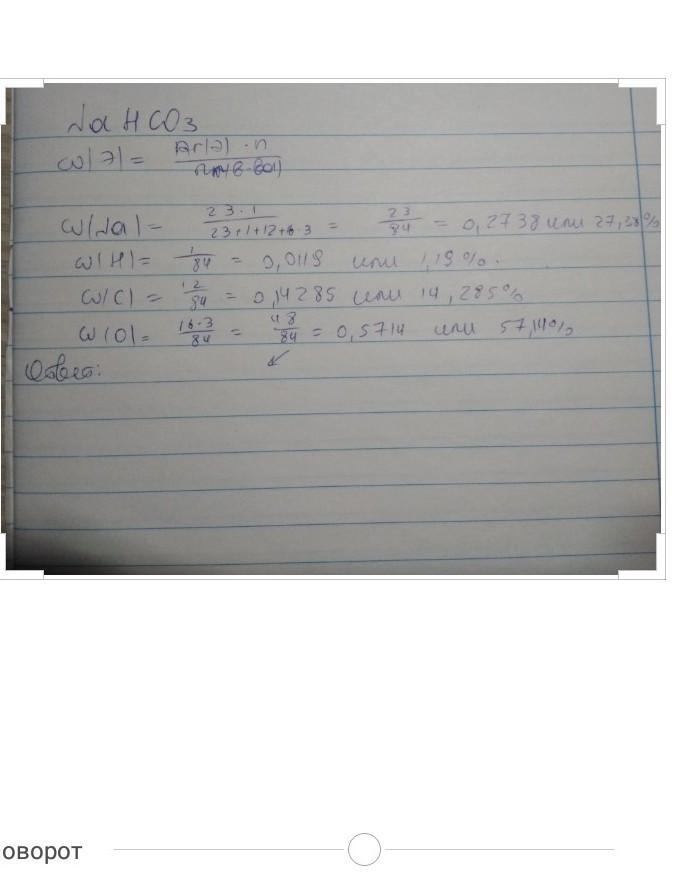 NaHCO3
ω(Э) = Ar(Э) · n / Mr(в-ва)
ω(Na) = 23·1 / 23+1+12+16·3 = 23/84 = 0,2738 или 27,38%
ω(H) = 1/84 = 0,0119 или 1,19%.
ω(C) = 12/84 = 0,14285 или 14,285%
ω(O) = 16·3/84 = 48/84 = 0,5714 или 57,14%
Ответ:
оворот